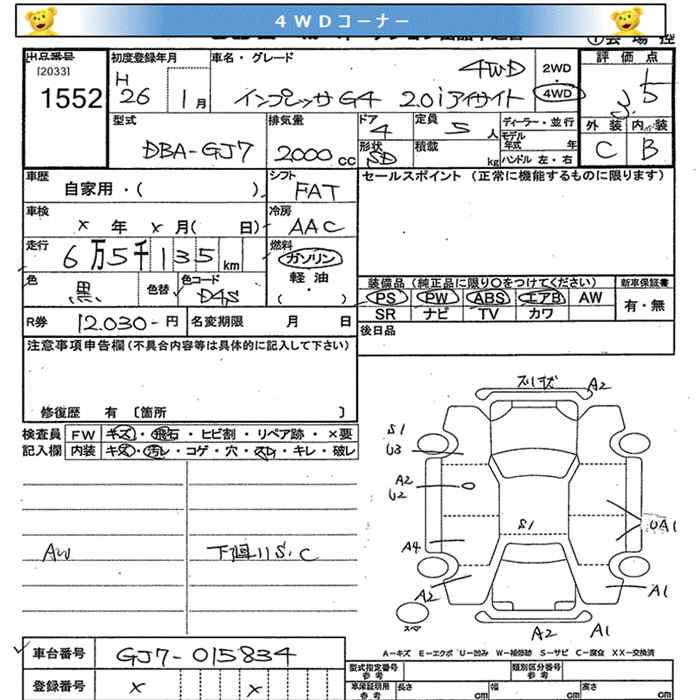 4WDコーナー
出品番号 初度登録年月 車名・グレード 評価点
[2033]
1552
H 26 1月 インプレッサG4 2.0iアイサイト 4WD 2WD・4WD 3.5
外装 内装
C B
型式 排気量 ドア 定員 ディーラー・並行
DBA-GJ7 2000cc 4 5人 モデル年式 年
形状 積載 ハンドル 左・右
SD kg
車歴 シフト セールスポイント(正常に機能するものに限ります)
自家用・( ) FAT
車検 冷房
×年×月( 日) AAC
走行 燃料
6万5千135km ガソリン
軽・油
( )
色 色替 色コード
黒 D4S
装備品(純正品に限り○をつけてください) 新車保証書
PS PW ABS エアB AW 有・無
SR ナビ TV カワ
R券 12.030-円 名変期限 月 日 後日品
注意事項申告欄(不具合内容等は具体的に記入して下さい)
修復歴 有 [箇所 ]
検査員 FW キズ・飛石・ヒビ割・リペア跡・×要
記入欄 内装 キズ・汚レ・コゲ・穴・スレ・キレ・破レ
AW 下廻りS.C
A2
S1
U3
A2
U2
S1
UA1
A4
A2
A1
スペア
A2 A1
A-キズ E-エクボ U-凹み W-補修跡 S-サビ C-腐食 XX-交換済
車台番号 GJ7-015834
登録番号 × ×
型式指定番号 参考 類別区分番号 参考
車庫証明用 参考 長さ cm 幅 cm 高さ cm